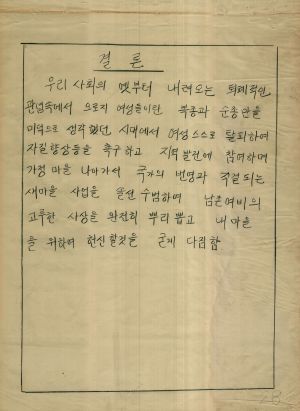 결론
우리 사회의 옛부터 내려오는 퇴폐적인
관념속에서 오로지 여성들이란 복종과 순종만을
미덕으로 생각했던 시대에서 여성 스스로 탈피하여
자질향상등을 촉구하고 지역발전에 참여하며
가정 마을 나아가서 국가의 번영과 직결되는
새마을 사업을 솔선수범하여 남존여비의
고루한 사상을 완전히 뿌리뽑고 내 마을
을 위하여 헌신할것을 굳게 다짐함
28